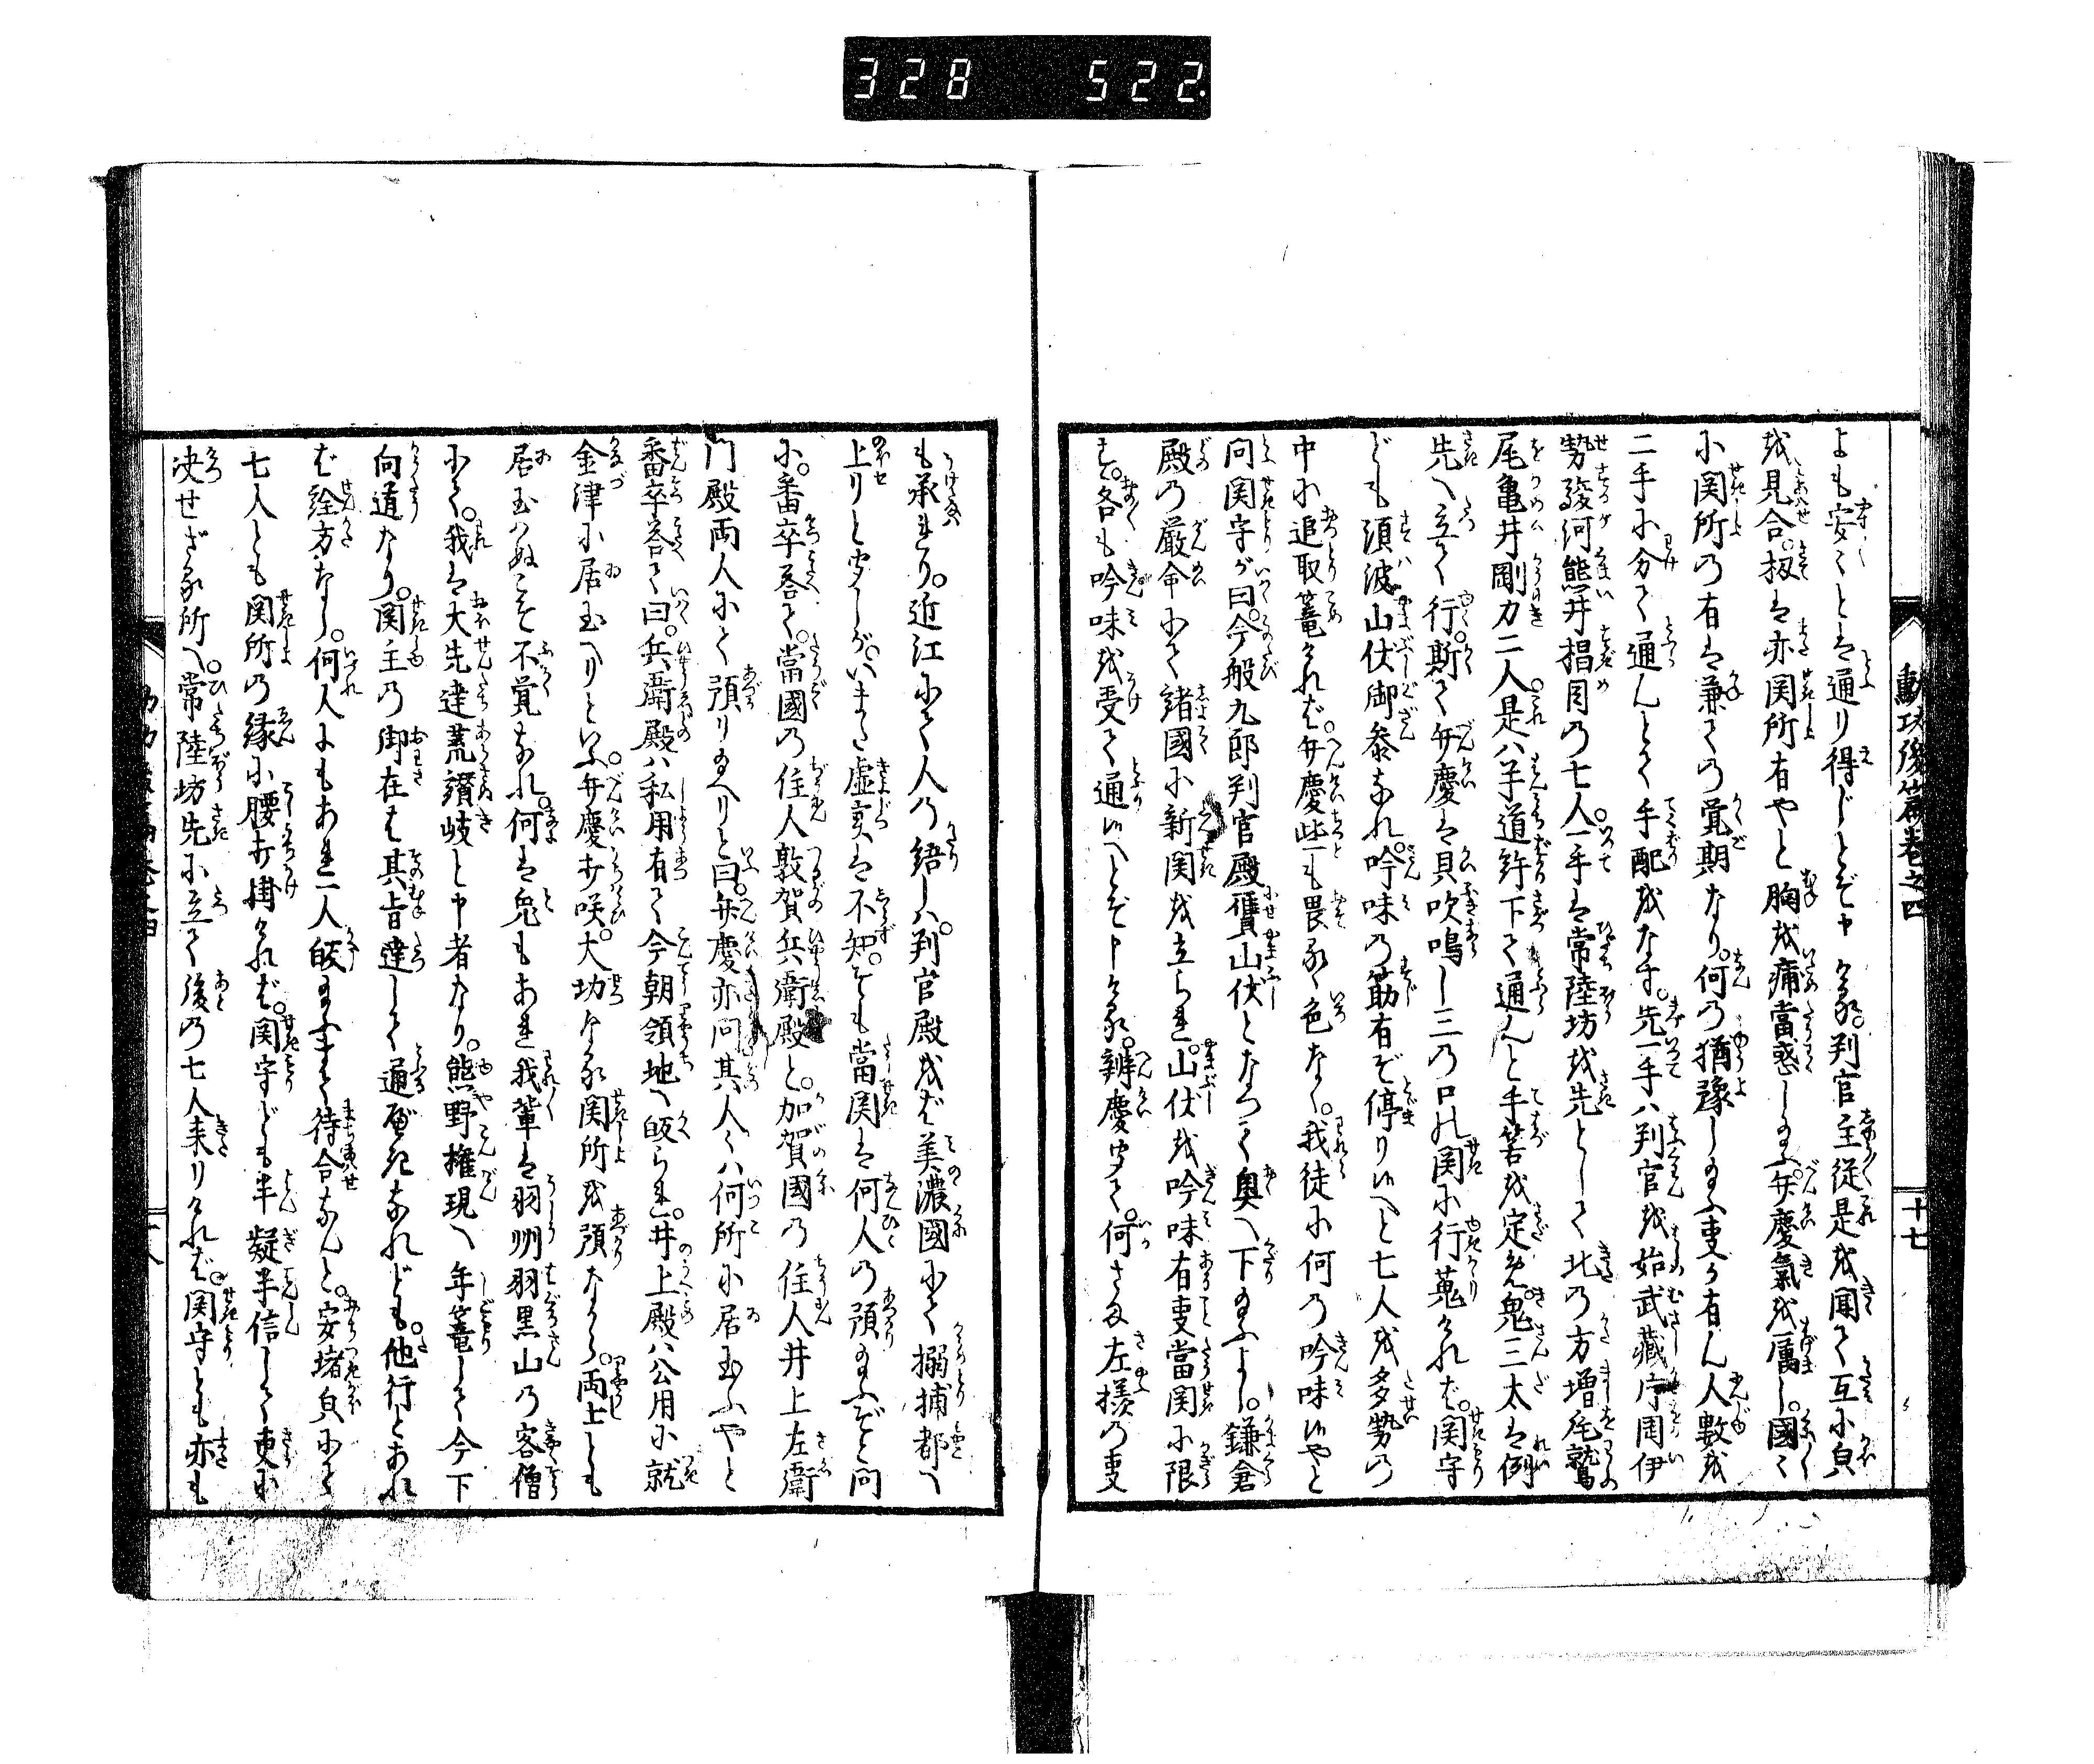 328 522.
勲功後篇巻之四
十七
よも安〻とは通り得じとぞ申ける。判官主従是を聞て互に㒵
を見合。扨は亦関所有やと胸を痛當惑し給ふ。弁慶氣を属し。國〻
に関所の有は兼ての覚期なり。何の猶豫し給ふ事か有ん人數を
二手に分て通んとて手配をなす。先一手ハ判官を始武藏片岡伊
勢駿河熊井掲目の七人。一手は常陸坊を先として北の方増尾鷲
尾亀井剛力二人是ハ半道許下て通んと手筈を定め。鬼三太は例
先へ立て行。斯て弁慶は貝吹鳴し三の口の関に行蒐ければ。関守
ども須波山伏御参なれ。吟味の筋有ぞ停り候へと七人を多勢の
中に追取篭ければ。弁慶些も畏るゝ色なく。我徒に何の吟味候やと
問関守が曰。今般九郎判官殿贋山伏となつて奥へ下給ふよし。鎌倉
殿の厳命にて諸國に新関を立られ。山伏を吟味有事當関に限
ず。各も吟味を受て通候へとぞ申ける。辨慶聞て。何さま左様の事
も承まり。近江にて人の語しハ。判官殿をば美濃國にて搦捕都へ
上りと聞しが。いまだ虚実は不知。そも當関は何人の預給ふぞと問
に。番卒答て。當國の住人敦賀兵衛殿と。加賀國の住人井上左衛
門殿両人にて預り給へりと曰。弁慶亦問其人〻ハ何所に居玉ふやと
番卒答て曰。兵衛殿ハ私用有て今朝領地へ皈られ。井上殿ハ公用に就
金津に居玉へりといふ。弁慶打咲。大切なる関所を預ながら。両士とも
居玉ハぬこそ不覚なれ。何は兎もあれ我輩は羽州羽黒山の客僧
にて。我は大先達荒讃岐と申者なり。熊野権現へ年篭して今下
向道なり。関主の御在は其旨達して通べきなれども。他行とあれ
ば詮方なし。何人にもあれ一人皈給ふまで待合なんと。安堵㒵にて
七人とも関所の縁に腰打掛ければ。関守ども半疑半信して更に
决せざる所へ。常陸坊先に立て後の七人来りければ。関守とも亦も